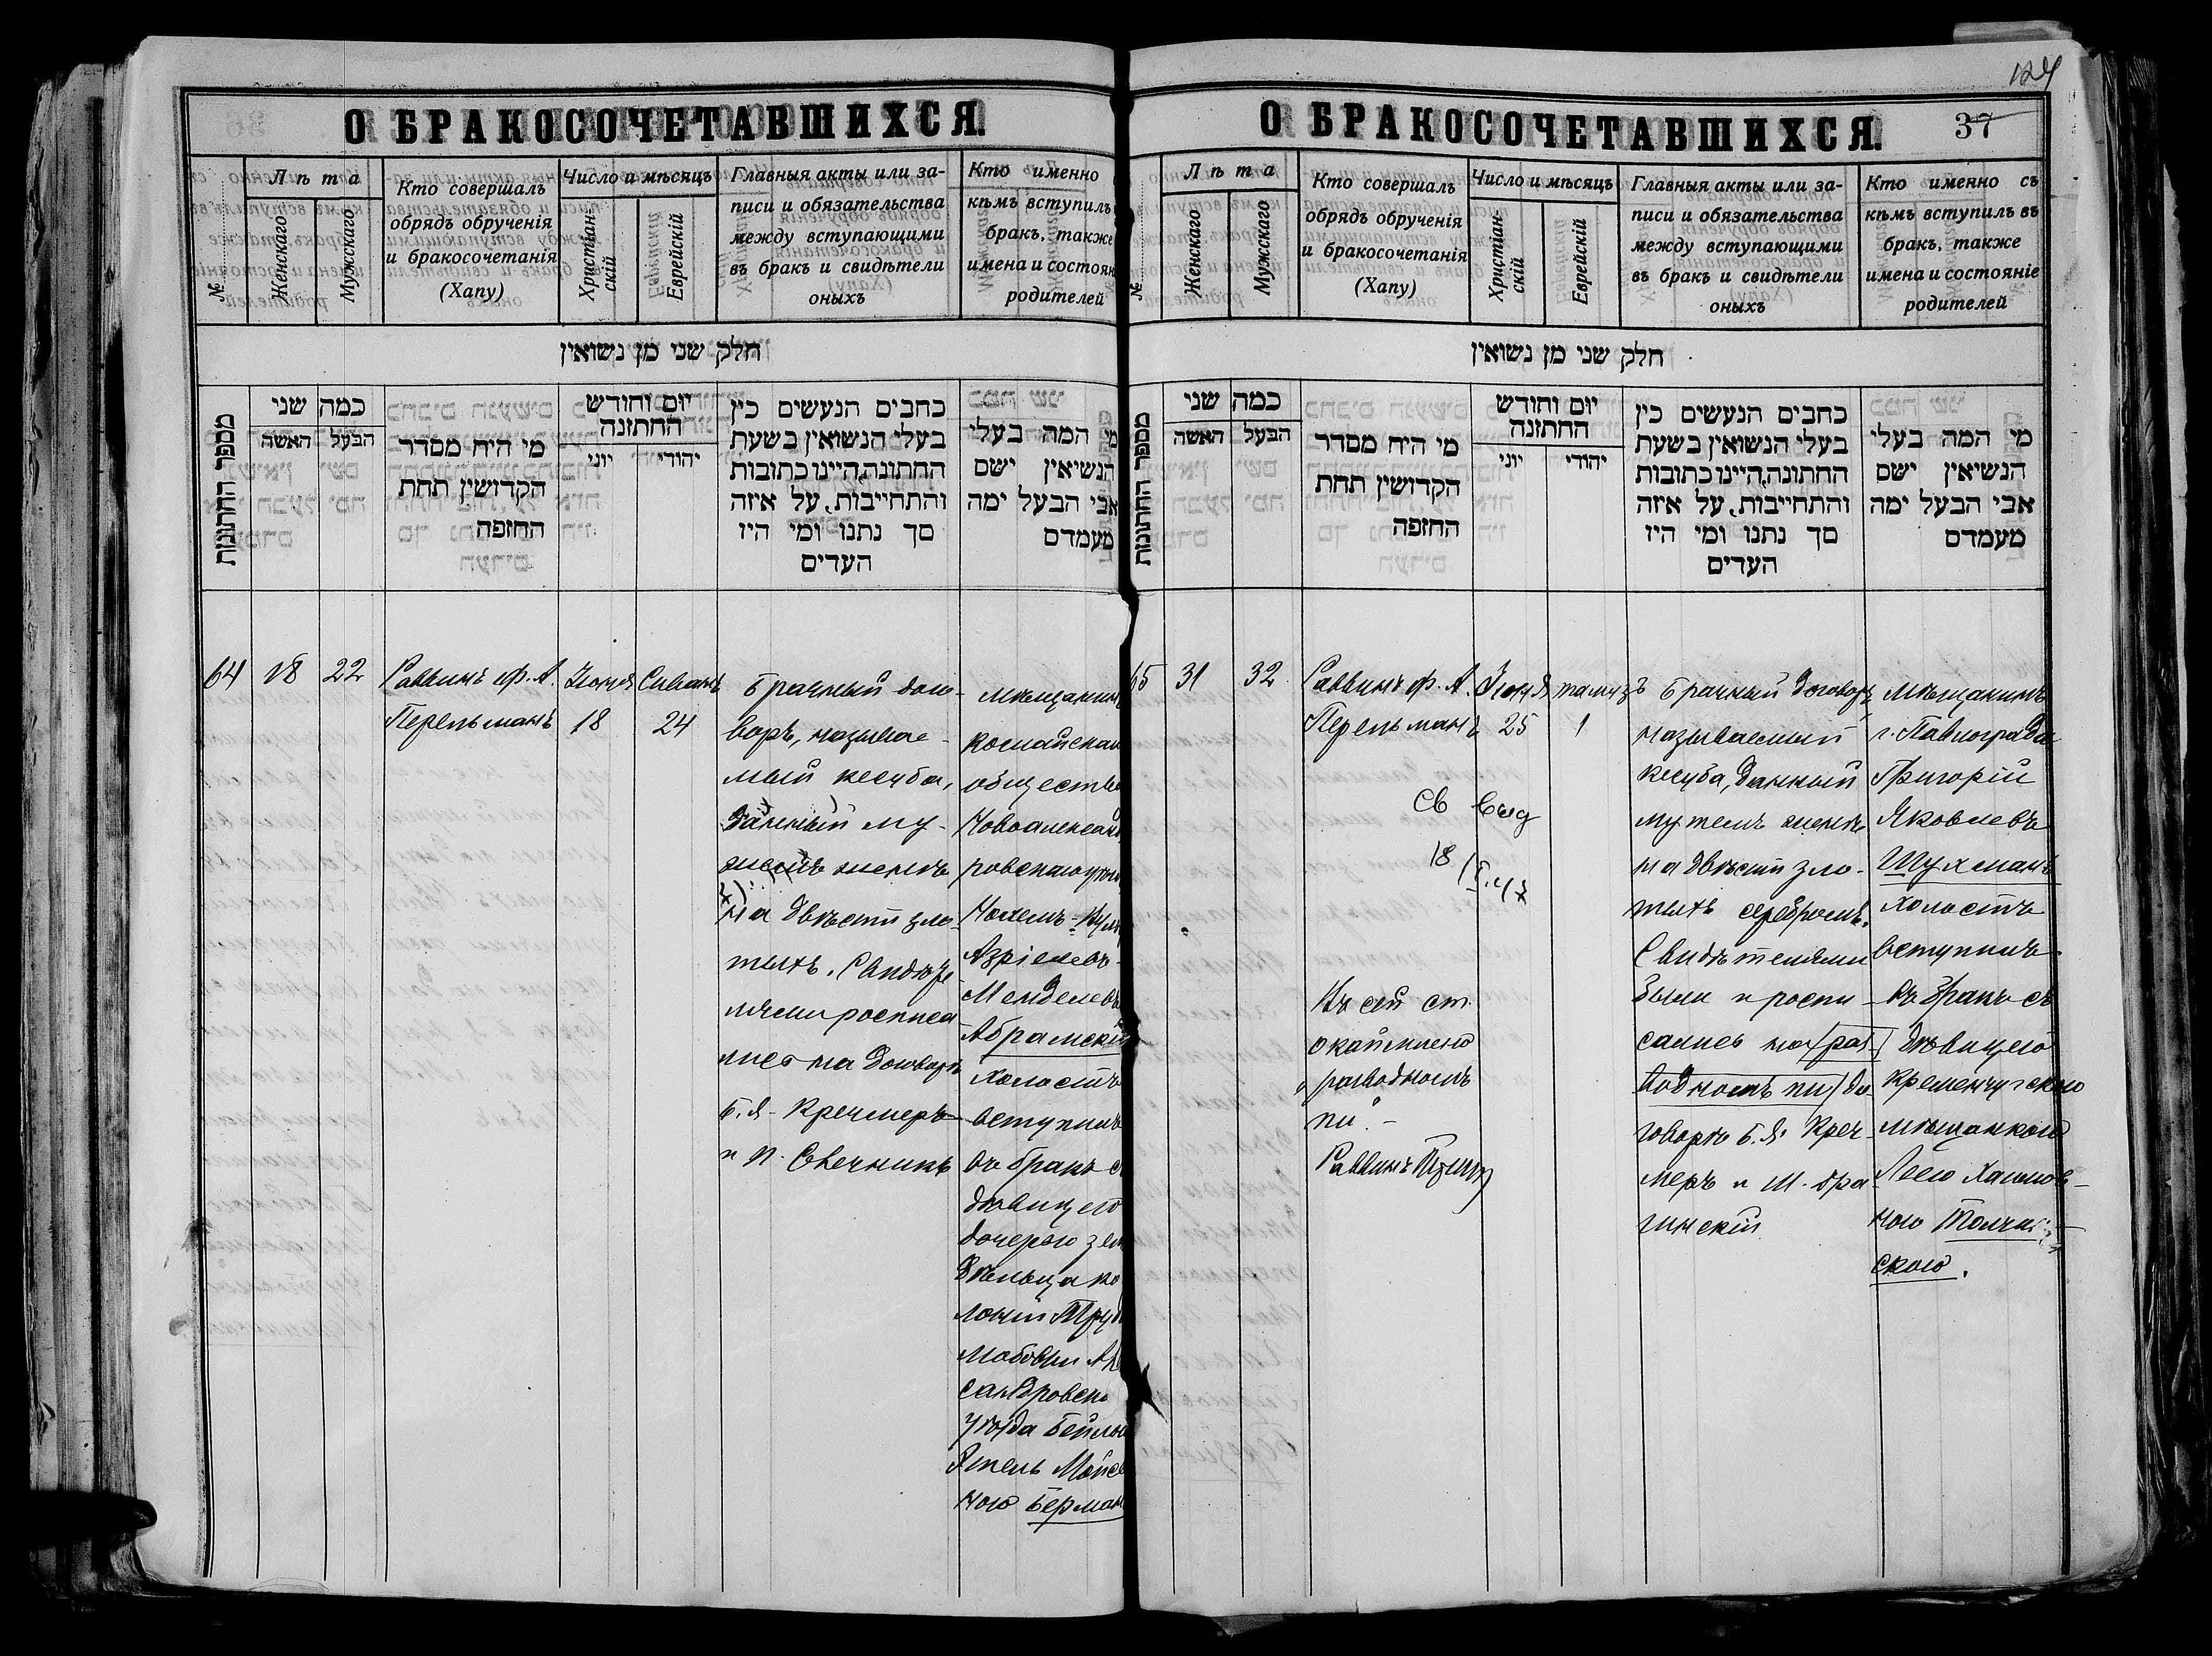 124
О БРАКОСОЧЕТАВШИХСЯ.
№
Лѣта
Женскаго
Мужскаго
Кто совершалъ
обрядъ обрученія
и бракосочетанія
(Хапу)
Число и мѣсяцъ
Христіан-
скій
Еврейскій
Главныя акты или за-
писи и обязательства
между вступающими
въ бракъ и свидѣтели
оныхъ
Кто именно
кѣмъ вступилъ
бракъ, также
имена и состоян
родителей
חלק שני מן נשואין
מספר החתונות
כמה שני
האשה
הבעל
מי היח מסדר
הקדושין תחת
החופה
יום וחודש
החתונה
יוני
יהודי
כחבים הנעשים כין
בעלי הנשואין בשעת
החתונה, היינו כתובות
והתחייבות, על איזה
סך נתנו ומי היו
העדים
מי המה בעלי
הנשיאין ישם
אבי הבעל ימה
מעמדם
64
18
22
Раввинъ ф. А.
Перельманъ
Іюня
18
Сиванъ
24
Брачный дого-
воръ, называе-
мый кесуба,
данный му-
жемъ женѣ
на двѣсти зло-
тыхъ. Свидѣте
лями росписа
лись на договорѣ
Б. Я. Кречмеръ
и П. Свечникъ
мѣщанинъ
общества
Новоалександ
Азріелевъ-
Менделевъ
Абрамскій
холостъ
вступилъ
въ бракъ с
дѣвицею
дочерью зем
дѣльца ко
лоніи Труд
любовки Але
сандровск
уѣзда Бейлы
Этель Мойсе
ною Берман
О БРАКОСОЧЕТАВШИХСЯ.
37
№
Лѣта
Женскаго
Мужскаго
Кто совершалъ
обрядъ обрученія
и бракосочетанія
(Хапу)
Число и мѣсяцъ
Христіан-
скій
Еврейскій
Главныя акты или за-
писи и обязательства
между вступающими
въ бракъ и свидѣтели
оныхъ
Кто именно съ
кѣмъ вступилъ въ
бракъ, также
имена и состояніе
родителей
חלק שני מן נשואין
מספר החתונות
כמה שני
האשה
הבעל
מי היח מסדר
הקדושין תחת
החופה
יום וחודש
החתונה
יוני
יהודי
כחבים הנעשים כין
בעלי הנשואין בשעת
החתונה, היינו כתובות
והתחייבות, על איזה
סך נתנו ומי היו
העדים
מי המה בעלי
הנשיאין ישם
אבי הבעל ימה
מעמדם
65
31
32
Раввинъ ф. А.
Перельманъ
Іюня
25
тамузъ
1
Св выд
18
Къ сей ст.
окаймлено
„разводномъ
пи“.-
Раввинъ
Брачный договоръ,
называемый
кесуба, данный
мужемъ женѣ
на двѣсти зло-
тыхъ серебромъ.
Свидѣтелями
были и роспи-
сались на (раз-
водномъ пи) до-
говорѣ Б. Я. Креч-
меръ и М. Дра
гинскій
мѣщанинъ
г. Павлограда
Григорій
Яковлевъ
Шухманъ
холостъ
вступилъ
въ бракъ съ
дѣвицею
Кременчугскою
мѣщанкою
Леею Хаимов-
ною Толчин-
скою.